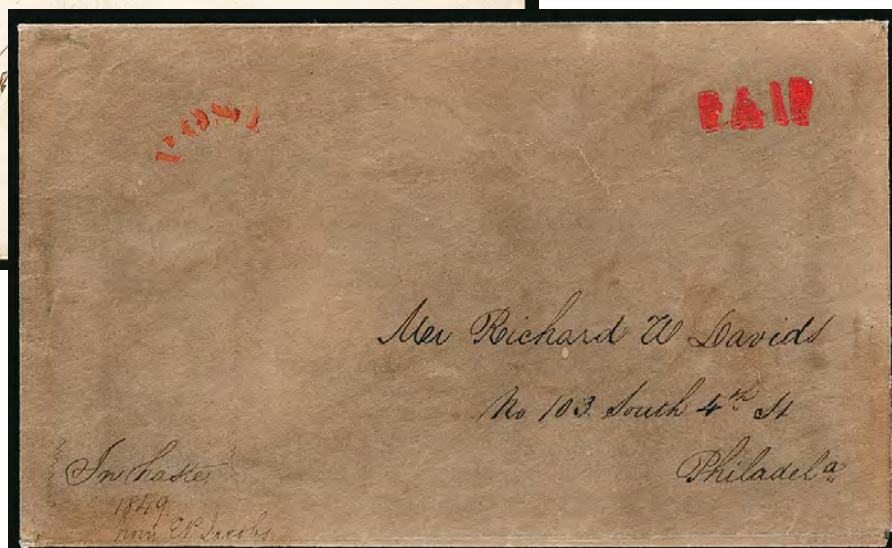 POST
PAID
Mer Richard W Davids
No 103 South 4th St
Philadela
In haste
1849
E P Jacobs